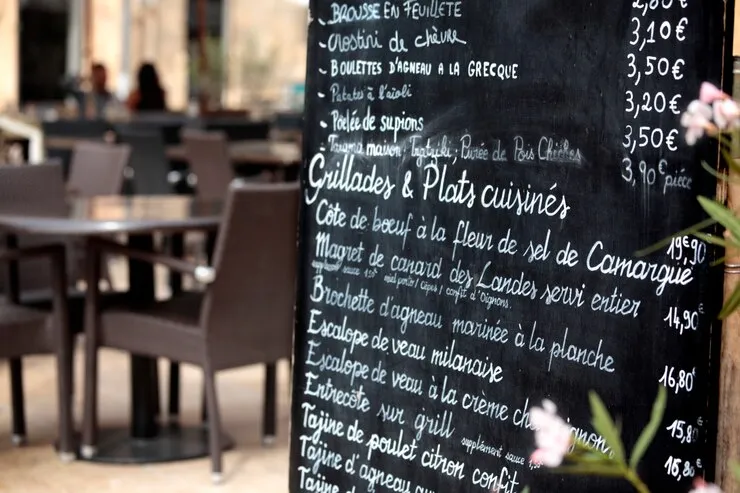 - BROUSSE EN FEUILLETÉ 2,80€
- Crostini de chèvre 3,10€
- BOULETTES D'AGNEAU A LA GRECQUE 3,50€
- Patates à l'aïoli 3,20€
- Poêlée de supions 3,50€
- Tarama maison; Tzatziki; Purée de Pois Chiches 3,90€ pièce
Grillades & Plats cuisinés
Côte de boeuf à la fleur de sel de Camargue 19€90
Magret de canard des Landes servi entier 14,90€
supplément sauce 1,50€ / Cèpes / confit d'oignons.
Brochette d'agneau marinée à la planche 16,80€
Escalope de veau milanaise 15,8
Escalope de veau à la crème 16,80
Entrecôte sur grill supplément sauce
Tajine de poulet citron confit
Tajine d'agneau aux
Tajine